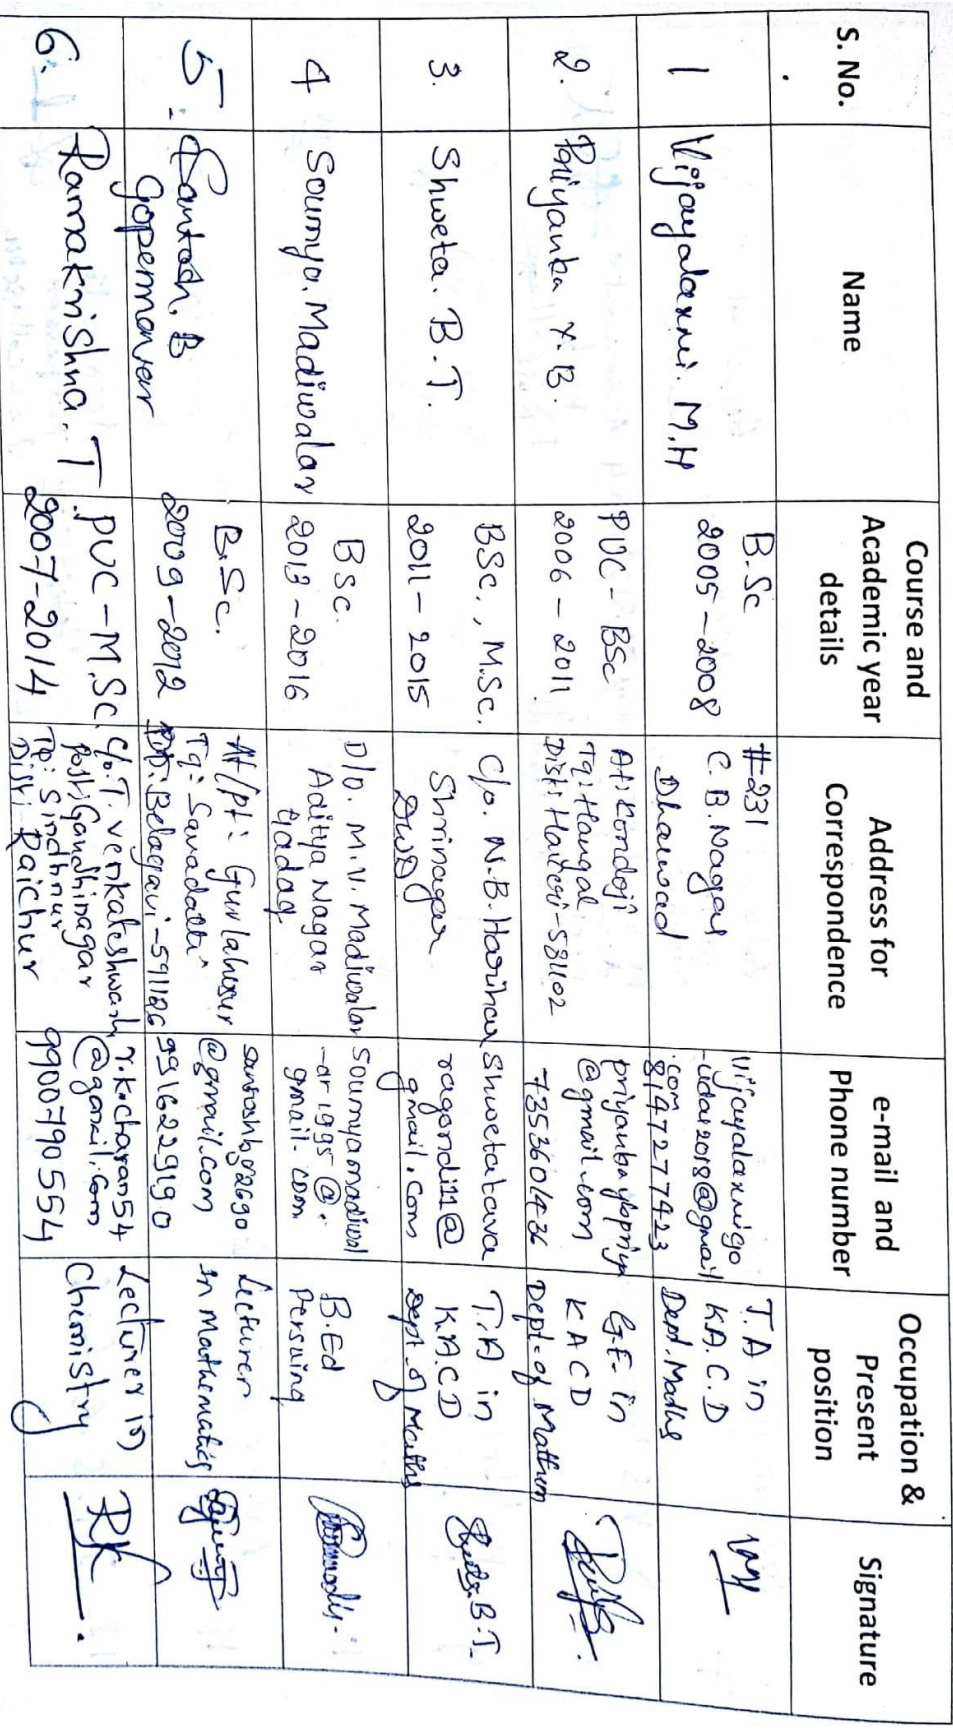 S. No.
Name
Course and
Academic year
details
Address for
Correspondence
e-mail and
Phone number
Occupation &
Present
position
Signature
1
Vijayalaxmi. M.H
B.Sc
2005-2008
#-231
C.B.Nagar
Dharwad
vijayalaxmigo
-udar2018@gmail
.com
8147277423
T.A in
K.A.C.D
Dept. Maths
2.
Priyanka Y.B.
PUC - BSc
2006 - 2011
At: Kondoji
Tq: Hangal
Dist: Haveri-581102
priyankaybpriya
@gmail.com
7353601436
G.F. in
KACD
Dept. of Mathem
3.
Shweta. B.T.
BSc., M.Sc.
2011 - 2015
C/o. N.B. Harihar
Shrinagar
DWD
shwetatava
ragondi11@
gmail.com
T.A in
K.A.CD
Dept. of Maths
Shweta.B.T.
4
Soumya. Madiwalar
BSc.
2013 - 2016
D/o. M.V. Madiwalar
Aditya Nagar
Gadag
Soumyamadiwal
-ar1995@.
gmail.com
B.Ed
Persuing
5.
Santosh. B
Gopermanvar
B.Sc.
2009-2012
At/pt: Gurlahosur
Tq: Savadatti
DT: Belagavi-591126
santoshbg2690
@gmail.com
9916229190
Lecturer
in Mathematics
6.
Ramakrishna. T
PUC - M.Sc.
2007-2014
C/o. T. Venkateshwarlu
Post: Gandhinagar
Tq: Sindhnur
Dist: Raichur
r.k.charan54
@gmail.com
9900790554
Lecturer in
Chemistry
RK